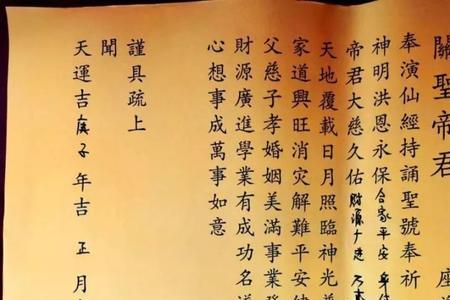 關聖帝君 座
奉演仙經持誦聖號奉祈
神明洪恩永保合家平安
帝君大慈久佑財源广进
天地覆載日月照臨神光
家道興旺消灾解難平安
父慈子孝婚姻美滿事業
財源廣進學業有成功名
心想事成萬事如意
謹具疏上
聞
天運吉庚子年吉 正月